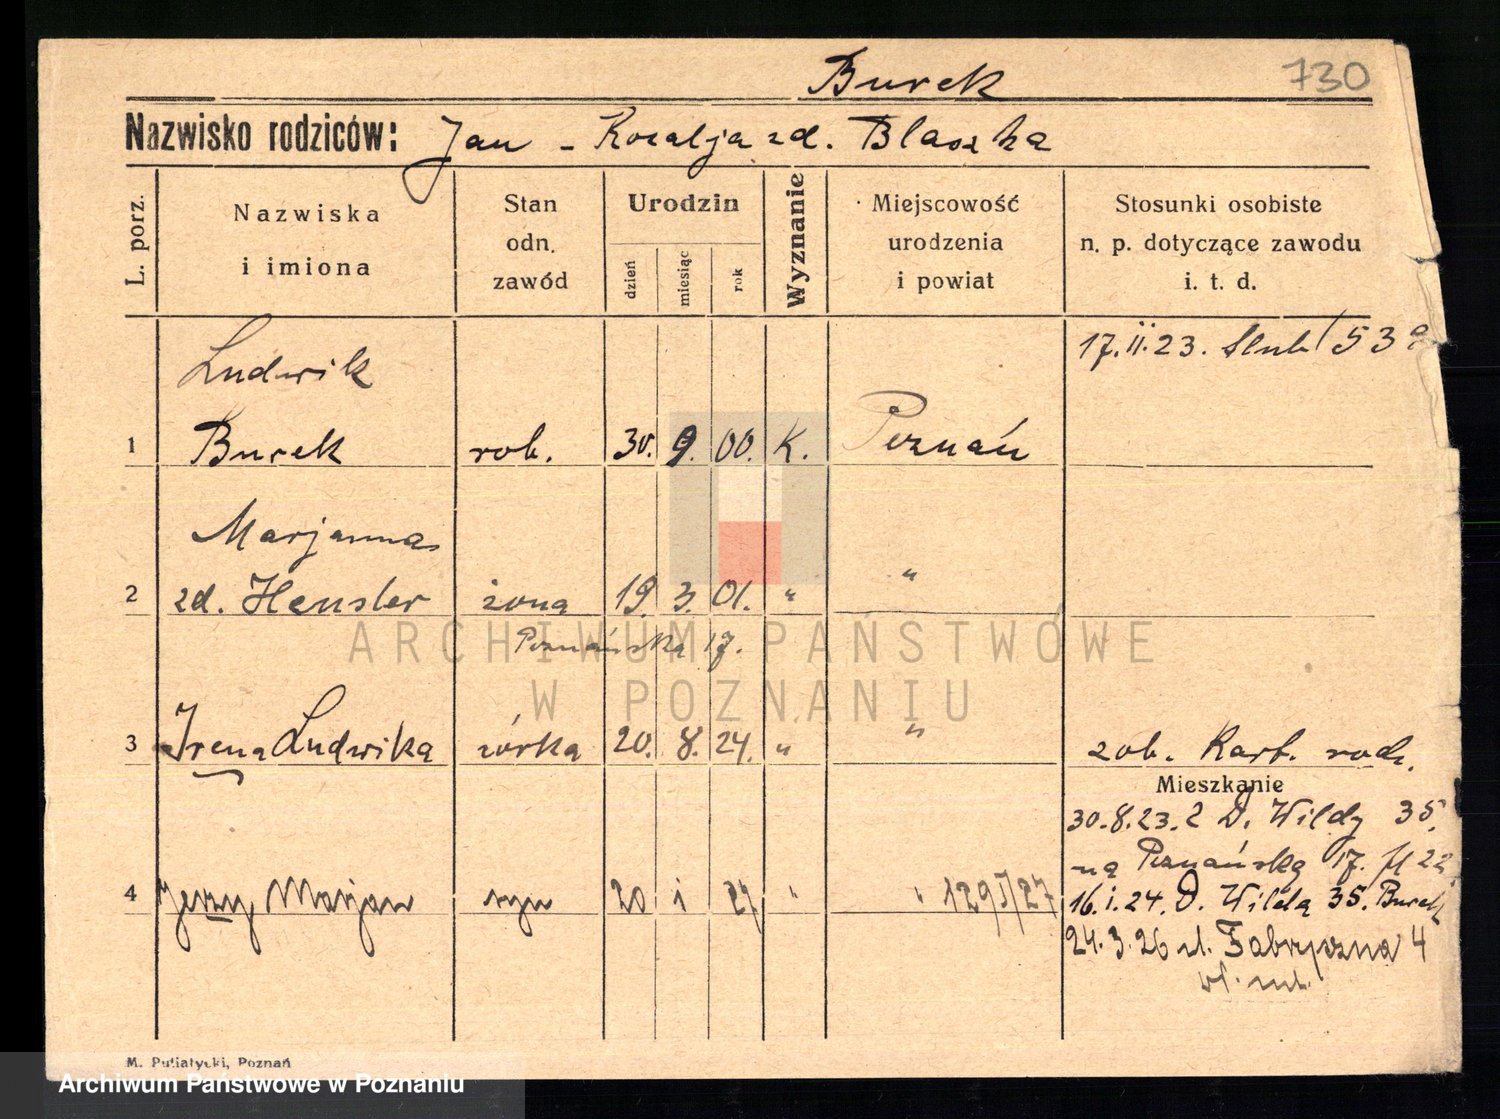 Burek 730
Nazwisko rodziców: Jan - Rozalja zd. Błaszka
L. porz.
Nazwiska
i imiona
Stan
odn.
zawód
Urodzin
dzień
miesiąc
rok
Wyznanie
Miejscowość
urodzenia
i powiat
Stosunki osobiste
n. p. dotyczące zawodu
i. t. d.
Ludwik 17.II.23. Slub
1 Burek rob. 30. 9. 00. K. Poznań
Marjanna
2 zd. Hensler żona 19. 3. 01. " "
Poznańska 17.
ARCHIWUM PAŃSTWOWE
W POZNANIU
3 Irena Ludwika córka 20. 8. 24. " " zob. Kart. rodz.
Mieszkanie
30.8.23. 2 D. Wildy 35.
na Poznańską 17.
4 Jerzy Marjan syn 20 i 27 " " 1295/27
16.i.24. D. Wildą 35. Burek
24.3.26 ul. Fabryczna 4
M. Putiatycki, Poznań
Archiwum Państwowe w Poznaniu